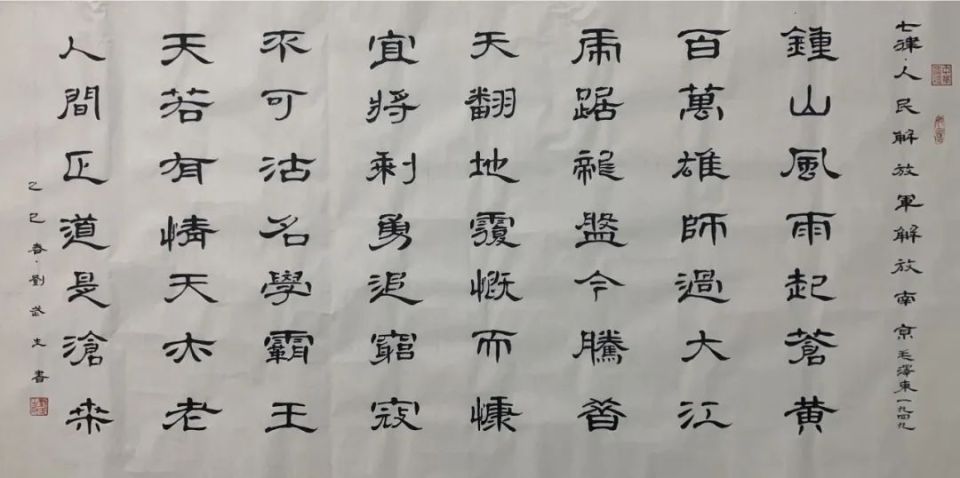 七律·人民解放軍解放南京 毛澤東一九四九
鍾山風雨起蒼黄
百萬雄師過大江
虎踞龍盤今騰昔
天翻地覆慨而慷
宜將剩勇追窮寇
不可沽名學霸王
天若有情天亦老
人間正道是滄桒
乙巳春·劉書